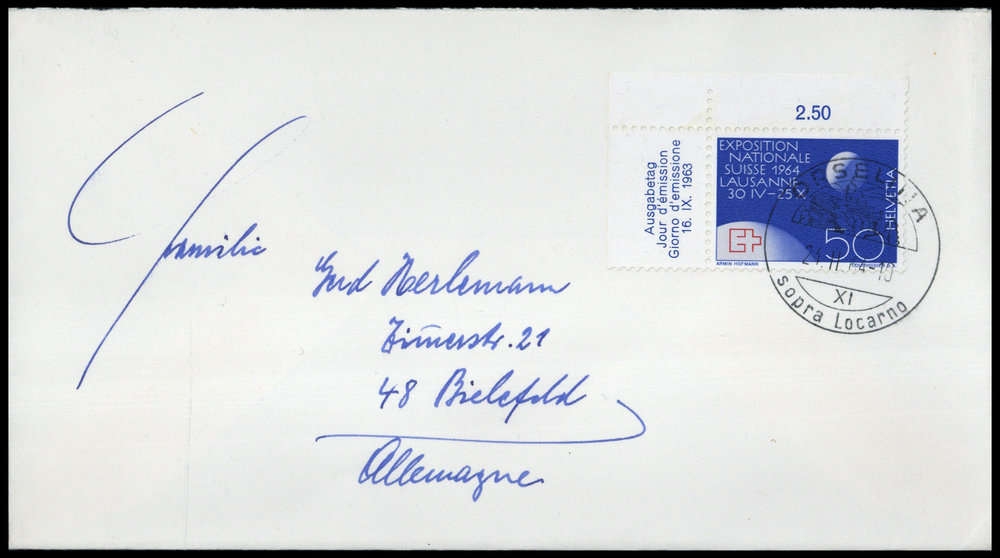 2.50
Ausgabetag
Jour d'émission
Giorno d'emissione
16. IX. 1963
EXPOSITION
NATIONALE
SUISSE 1964
LAUSANNE
30 IV–25 X
HELVETIA
50
ARMIN HOFMANN
ORSELINA
XI
sopra Locarno
Familie
Gerd Herlemann
48 Bielefeld
Allemagne